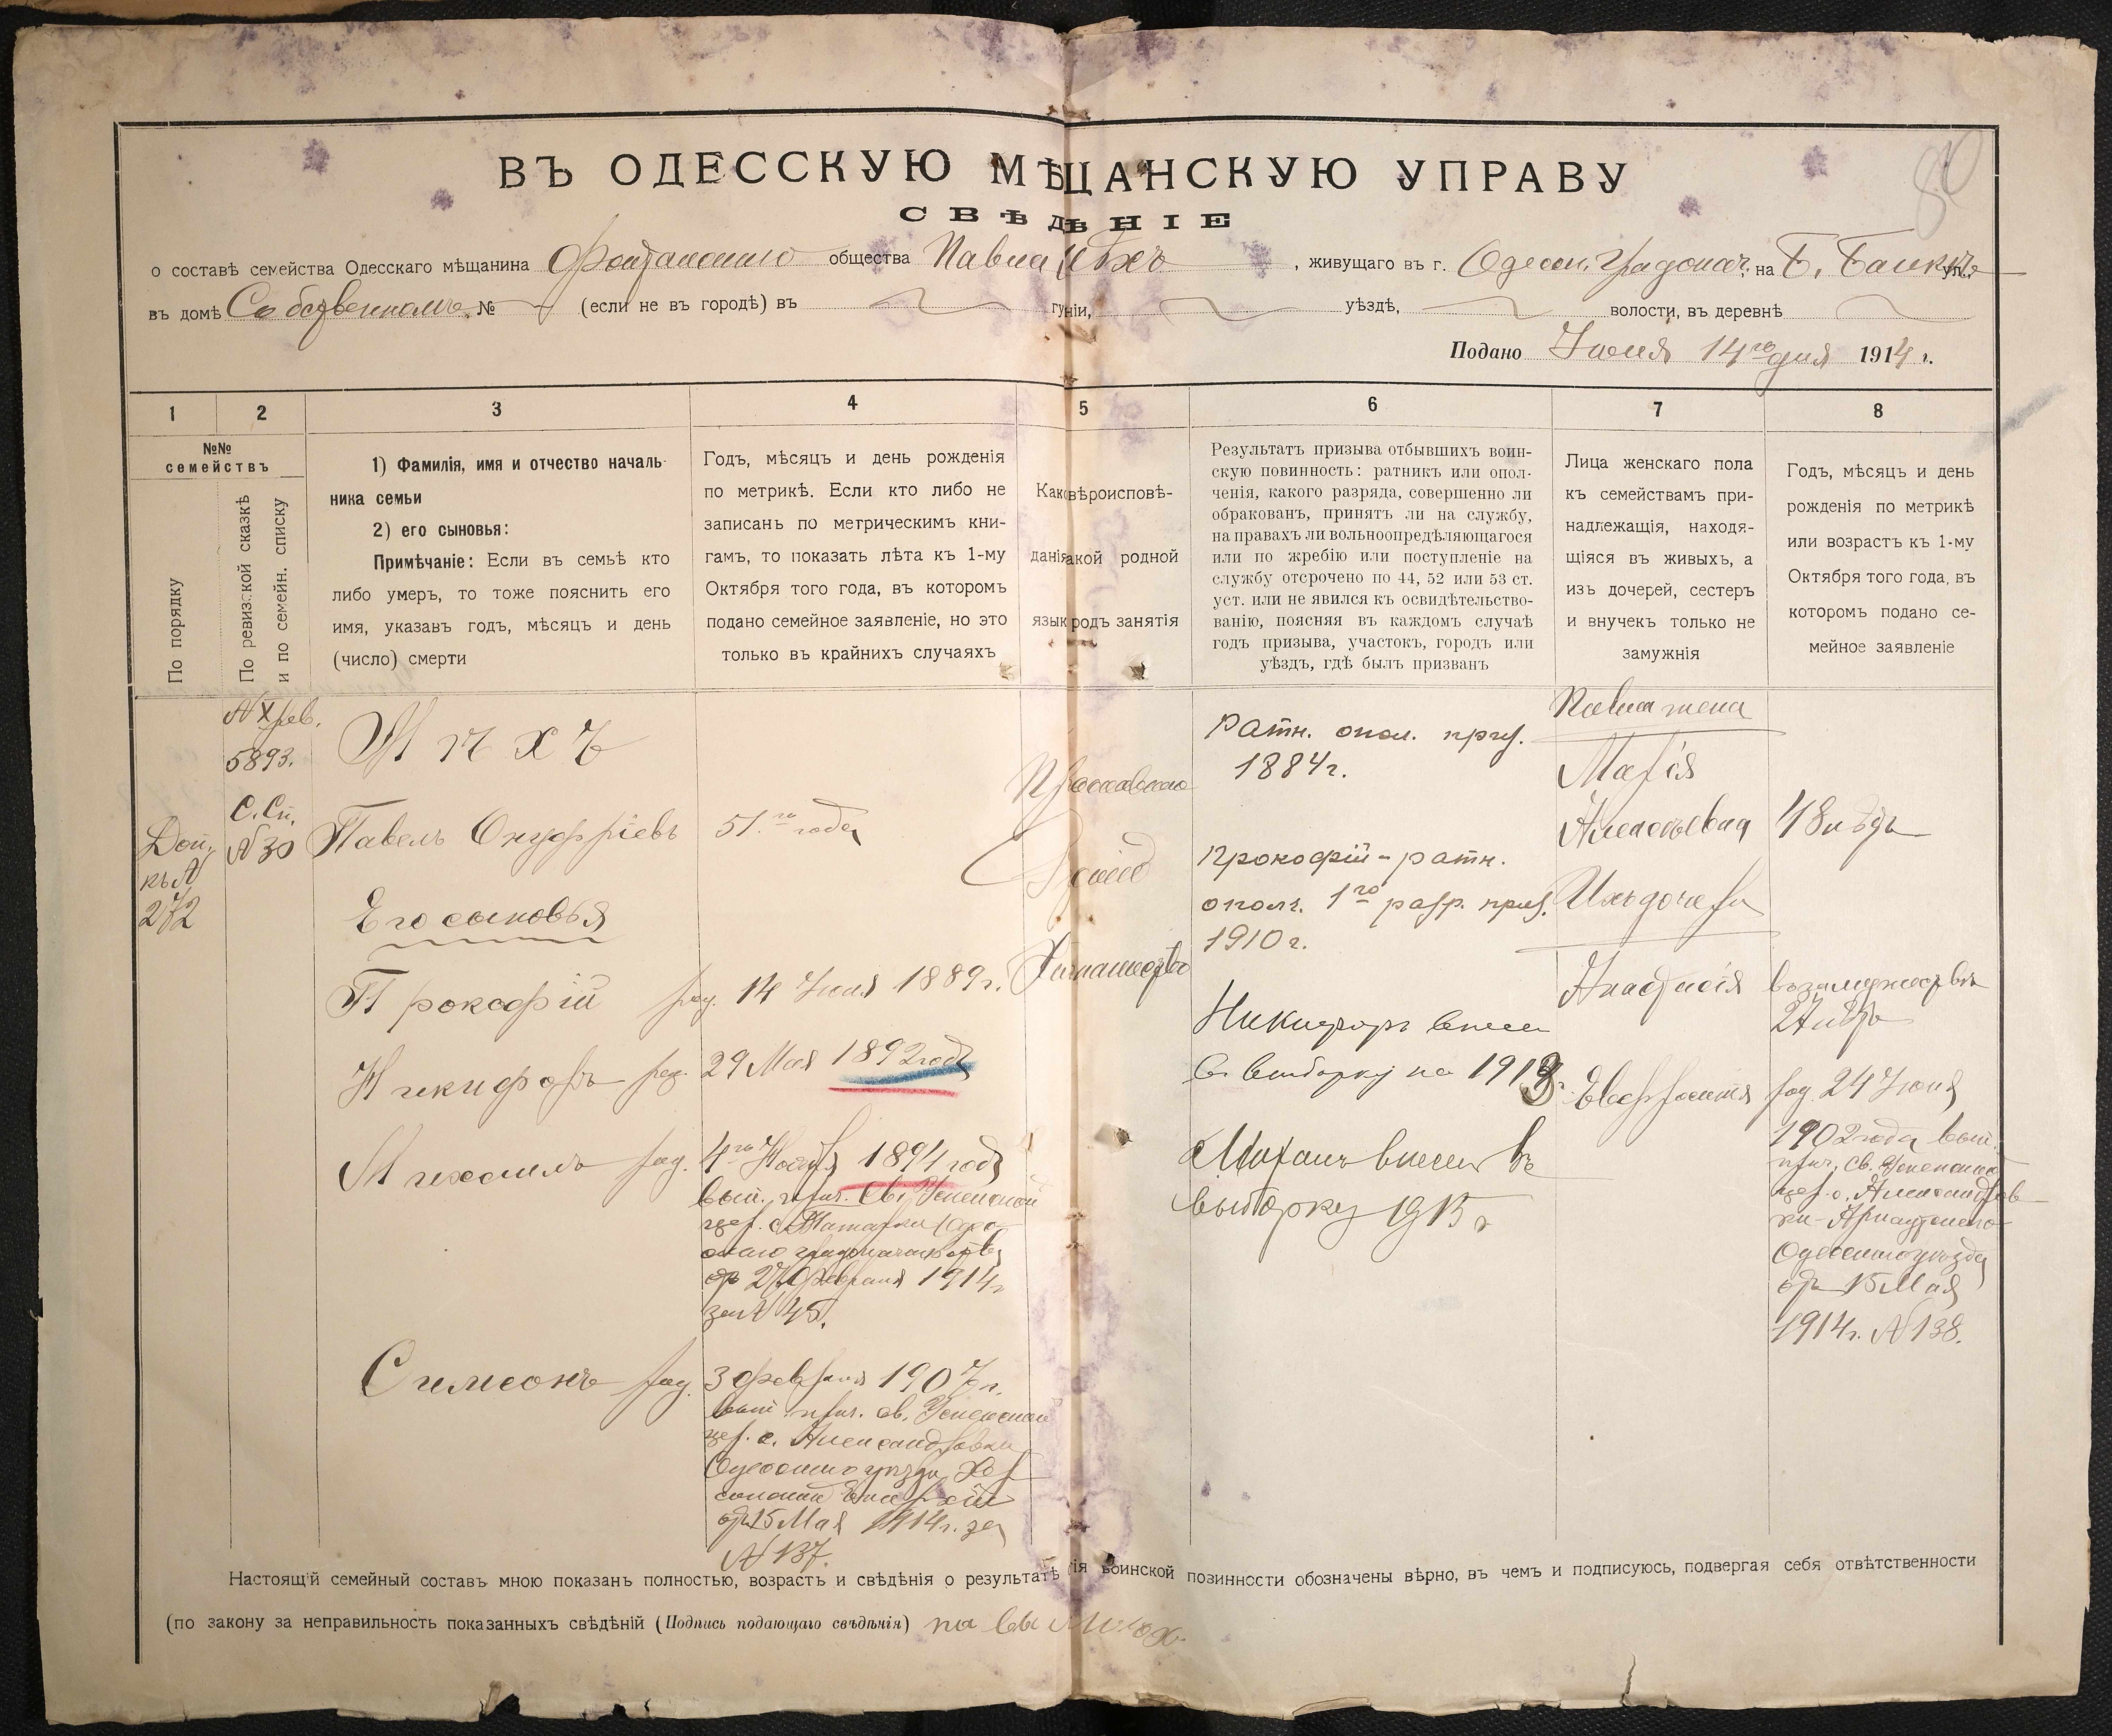 80
ВЪ ОДЕССКУЮ МѢЩАНСКУЮ УПРАВУ
СВѢДѢНІЕ
о составѣ семейства Одесскаго мѣщанина Фонтанскаго общества Павла Мѣхъ, живущаго въ г. Одесск. Градонач. на Б. ул.
въ домѣ Собственномъ № (если не въ городѣ) въ губерніи, уѣздѣ, волости, въ деревнѣ
Подано Іюня 14го дня 1914 г.
1 2 3 4 5 6 7 8
№№ семействъ
По порядку
По ревизской сказкѣ и по семейн. списку
1) Фамилія, имя и отчество началь-
ника семьи
2) его сыновья:
Примѣчаніе: Если въ семьѣ кто
либо умеръ, то тоже пояснить его
имя, указавъ годъ, мѣсяцъ и день
(число) смерти
Годъ, мѣсяцъ и день рожденія
по метрикѣ. Если кто либо не
записанъ по метрическимъ кни-
гамъ, то показать лѣта къ 1-му
Октября того года, въ которомъ
подано семейное заявленіе, но это
только въ крайнихъ случаяхъ
Как вѣроисповѣ-
данія акой родной
язык родъ занятія
Результатъ призыва отбывшихъ воин-
скую повинность: ратникъ или опол-
ченія, какого разряда, совершенно ли
обракованъ, принятъ ли на службу,
на правахъ ли вольноопредѣляющагося
или по жребію или поступленіе на
службу отсрочено по 44, 52 или 53 ст.
уст. или не явился къ освидѣтельство-
ванію, поясняя въ каждомъ случаѣ
годъ призыва, участокъ, городъ или
уѣздъ, гдѣ былъ призванъ
Лица женскаго пола
къ семействамъ при-
надлежащія, находя-
щіяся въ живыхъ, а
изъ дочерей, сестеръ
и внучекъ только не
замужнія
Годъ, мѣсяцъ и день
рожденія по метрикѣ
или возрастъ къ 1-му
Октября того года, въ
которомъ подано се-
мейное заявленіе
Доп.
къ №
272
№ X рев.
5893.
С. Сп.
№ 30
Мѣхъ
Павелъ Онуфріевъ
Его сыновья
Прокофій
Никифоръ
Михаилъ
Симеонъ
51го года
род. 14 Іюля 1889 г.
род. 29 Мая 1892 года
род. 4го Ноября 1894 года
вып. прич. Св. Успенской
цер. с. Одес-
скаго градоначальства
отъ 27 Февраля 1914 г.
за № 45.
род. 3 февраля 1907 г.
вып. прич. св. Успенской
цер. с. Александровки
Одесскаго уѣзда, Хер-
сонской Епархіи
отъ 15 Мая 1914 г. за
№ 137.
Православнаго
Русскій
Хлѣбопашество
Ратн. опол. приз.
1884 г.
Прокофій - ратн.
ополч. 1го разр. приз.
1910 г.
Никифоръ внесен
въ выборку на 1913 г.
Михаилъ внесен въ
выборку 1915 г
Павла жена
Марія
Алексѣевна
Ихъ дочери
Анастасія
Евфросинія
48 лѣтъ
въ замужествѣ
27 лѣтъ
род. 24 Іюня
1902 года вып.
прич. св. Успенской
цер. с. Александров-
ки
Одесскаго уѣзда
отъ 15 Мая
1914 г. № 138.
Настоящій семейный составъ мною показанъ полностью, возрастъ и свѣдѣнія о результатѣ тія воинской повинности обозначены вѣрно, въ чемъ и подписуюсь, подвергая себя отвѣтственности
(по закону за неправильность показанныхъ свѣдѣній (Подпись подающаго свѣдѣнія)